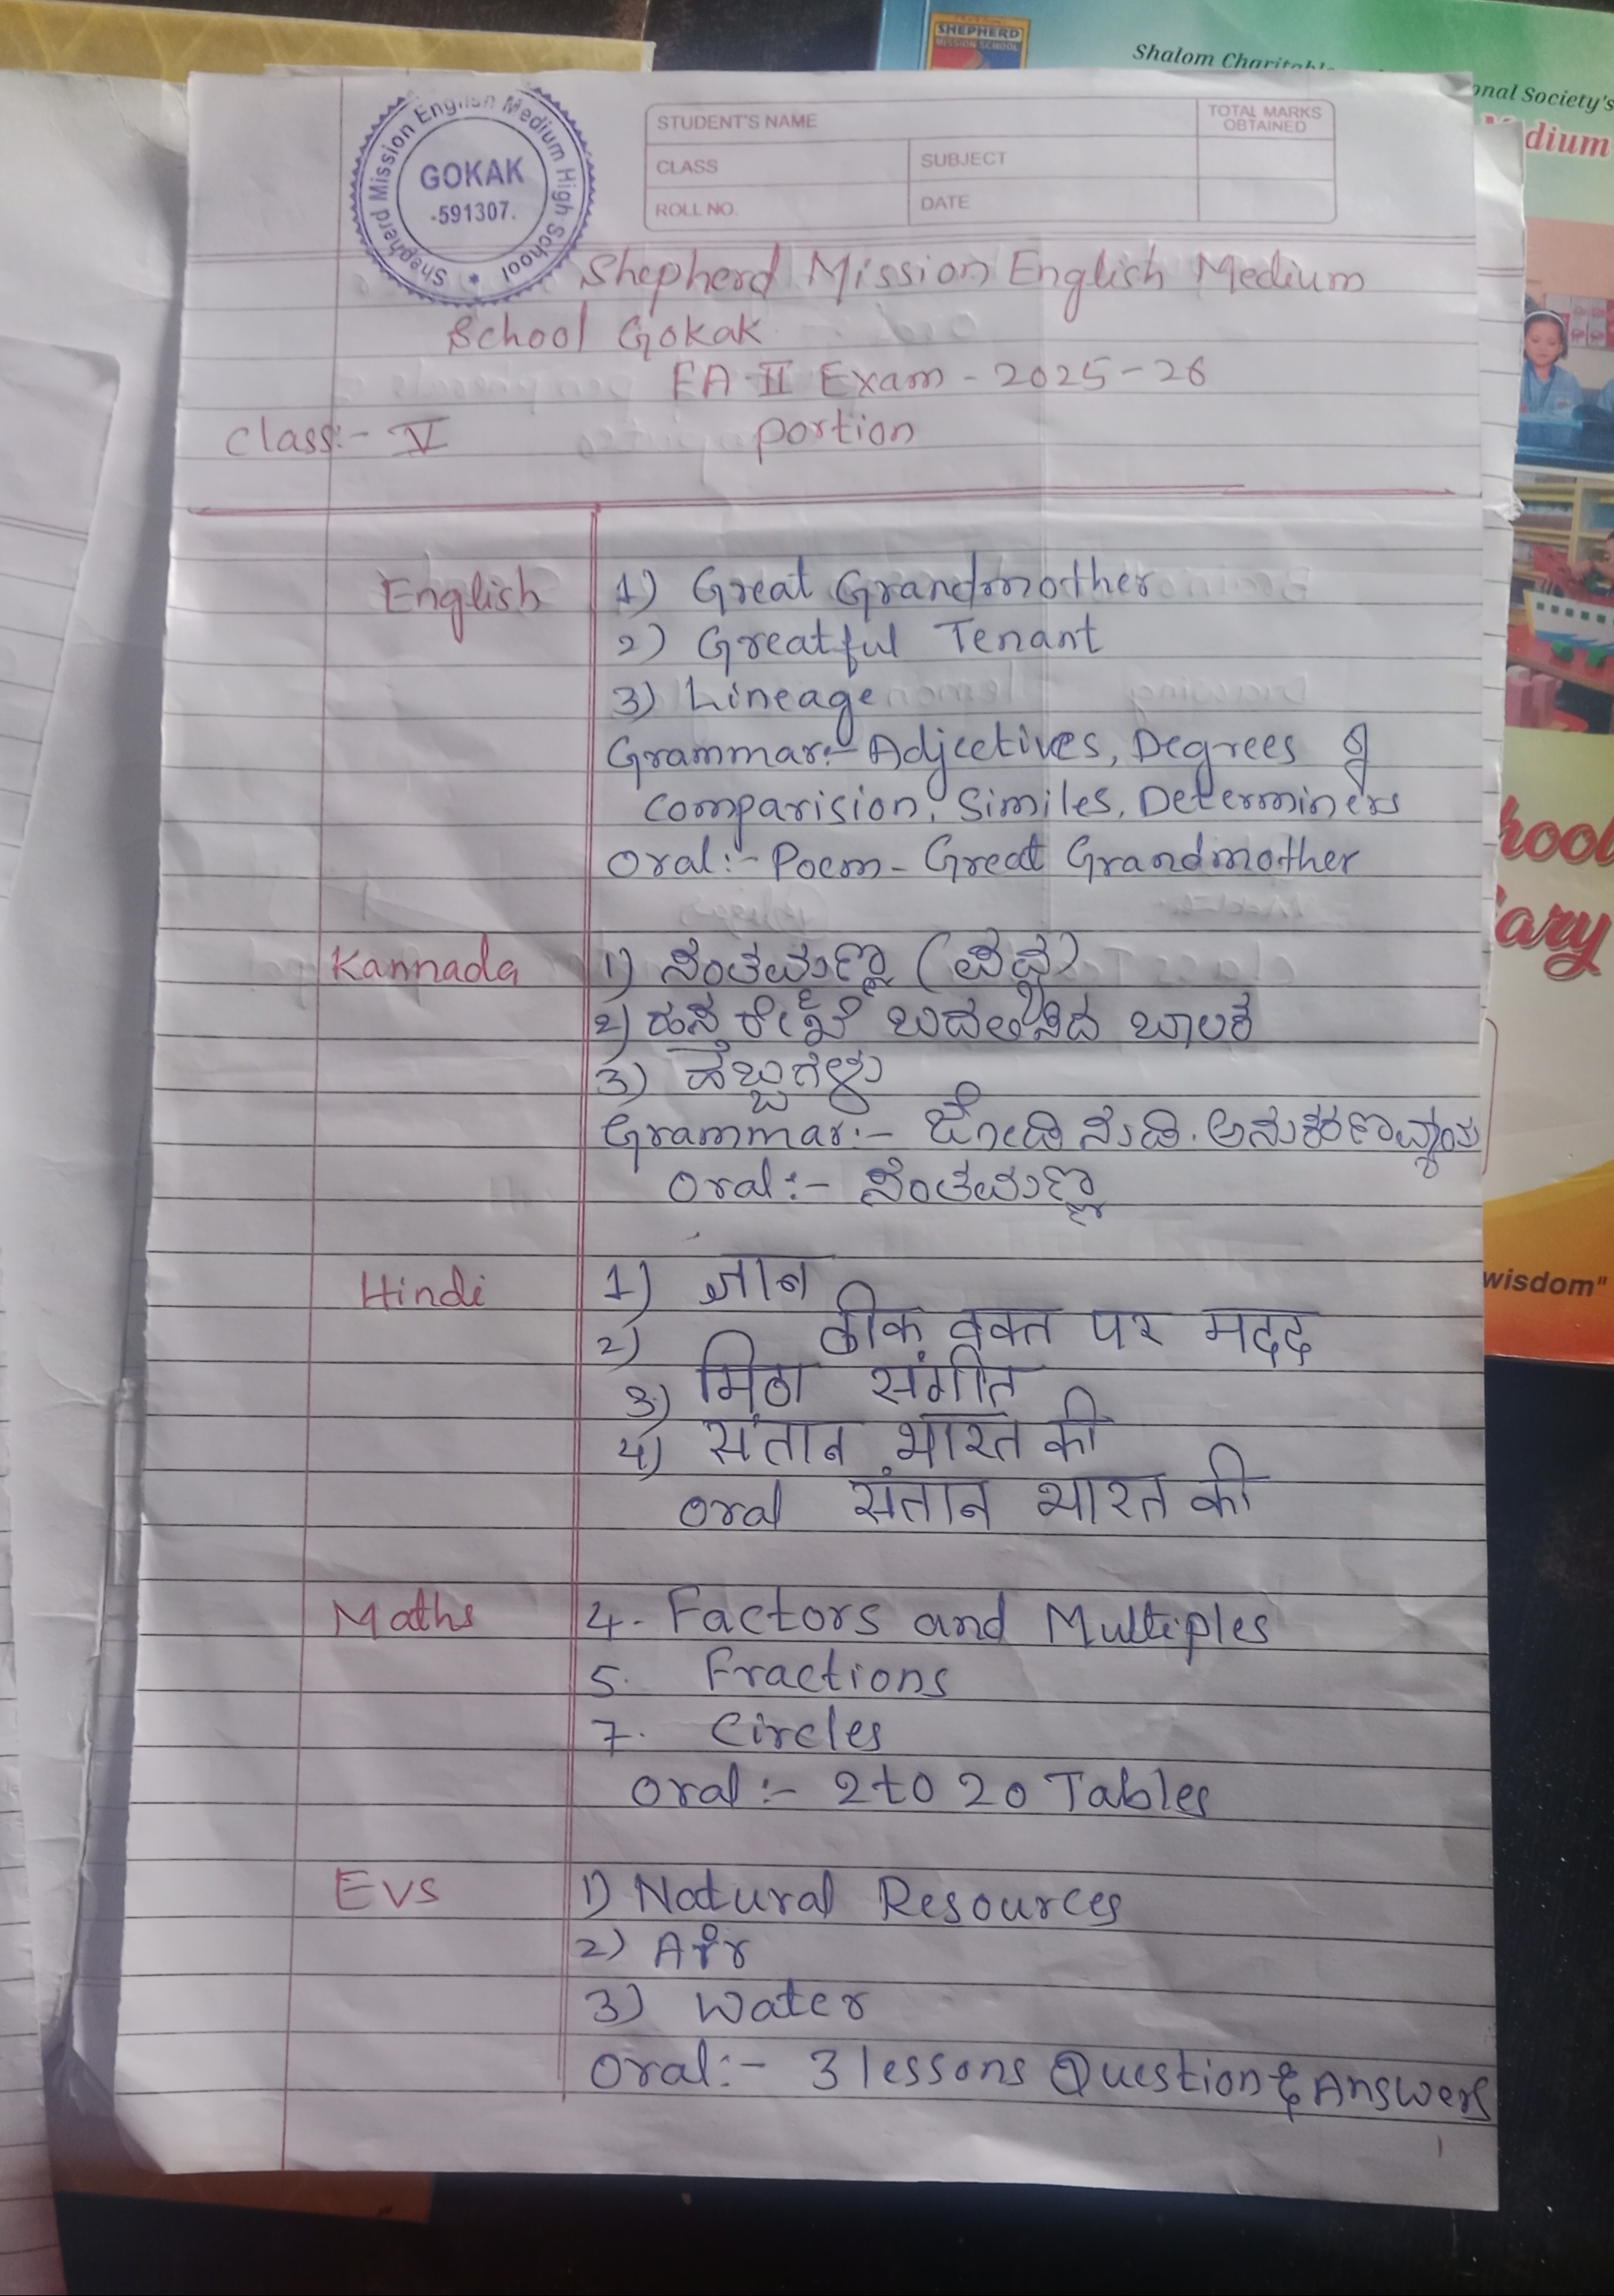 SHEPHERD
MISSION SCHOOL
Shalom Charitable
onal Society's
dium
Shepherd Mission English Medium High School *
GOKAK
-591307.
STUDENT'S NAME
TOTAL MARKS OBTAINED
CLASS
SUBJECT
ROLL NO.
DATE
Shepherd Mission English Medium
School Gokak
FA-II Exam - 2025-26
Class:- V portion
English 1) Great Grandmother
2) Greatful Tenant
3) Lineage
Grammar:- Adjectives, Degrees of
Comparision, Similes, Determiners
Oral:- Poem - Great Grandmother
Kannada 1) ಸಂತಮ್ಮಣ್ಣ (ಪದ್ಯ)
2) ಹಸ್ತ ರೇಖೆ ಬದಲಿಸಿದ ಬಾಲಕ
3) ಹಬ್ಬಗಳು
Grammar:- ಜೋಡಿ ನುಡಿ. ಅನುಕರಣಾವ್ಯಯ
Oral:-
Hindi 1) ज्ञान
2) ठीक वक्त पर मदद
3) मिठा संगीत
4) संतान भारत की
Oral संतान भारत की
Maths 4. Factors and Multiples
5. Fractions
7. Circles
Oral:- 2 to 20 Tables
EVS 1) Natural Resources
2) Air
3) Water
Oral:- 3 lessons Question & Answers
hool
ary
wisdom"